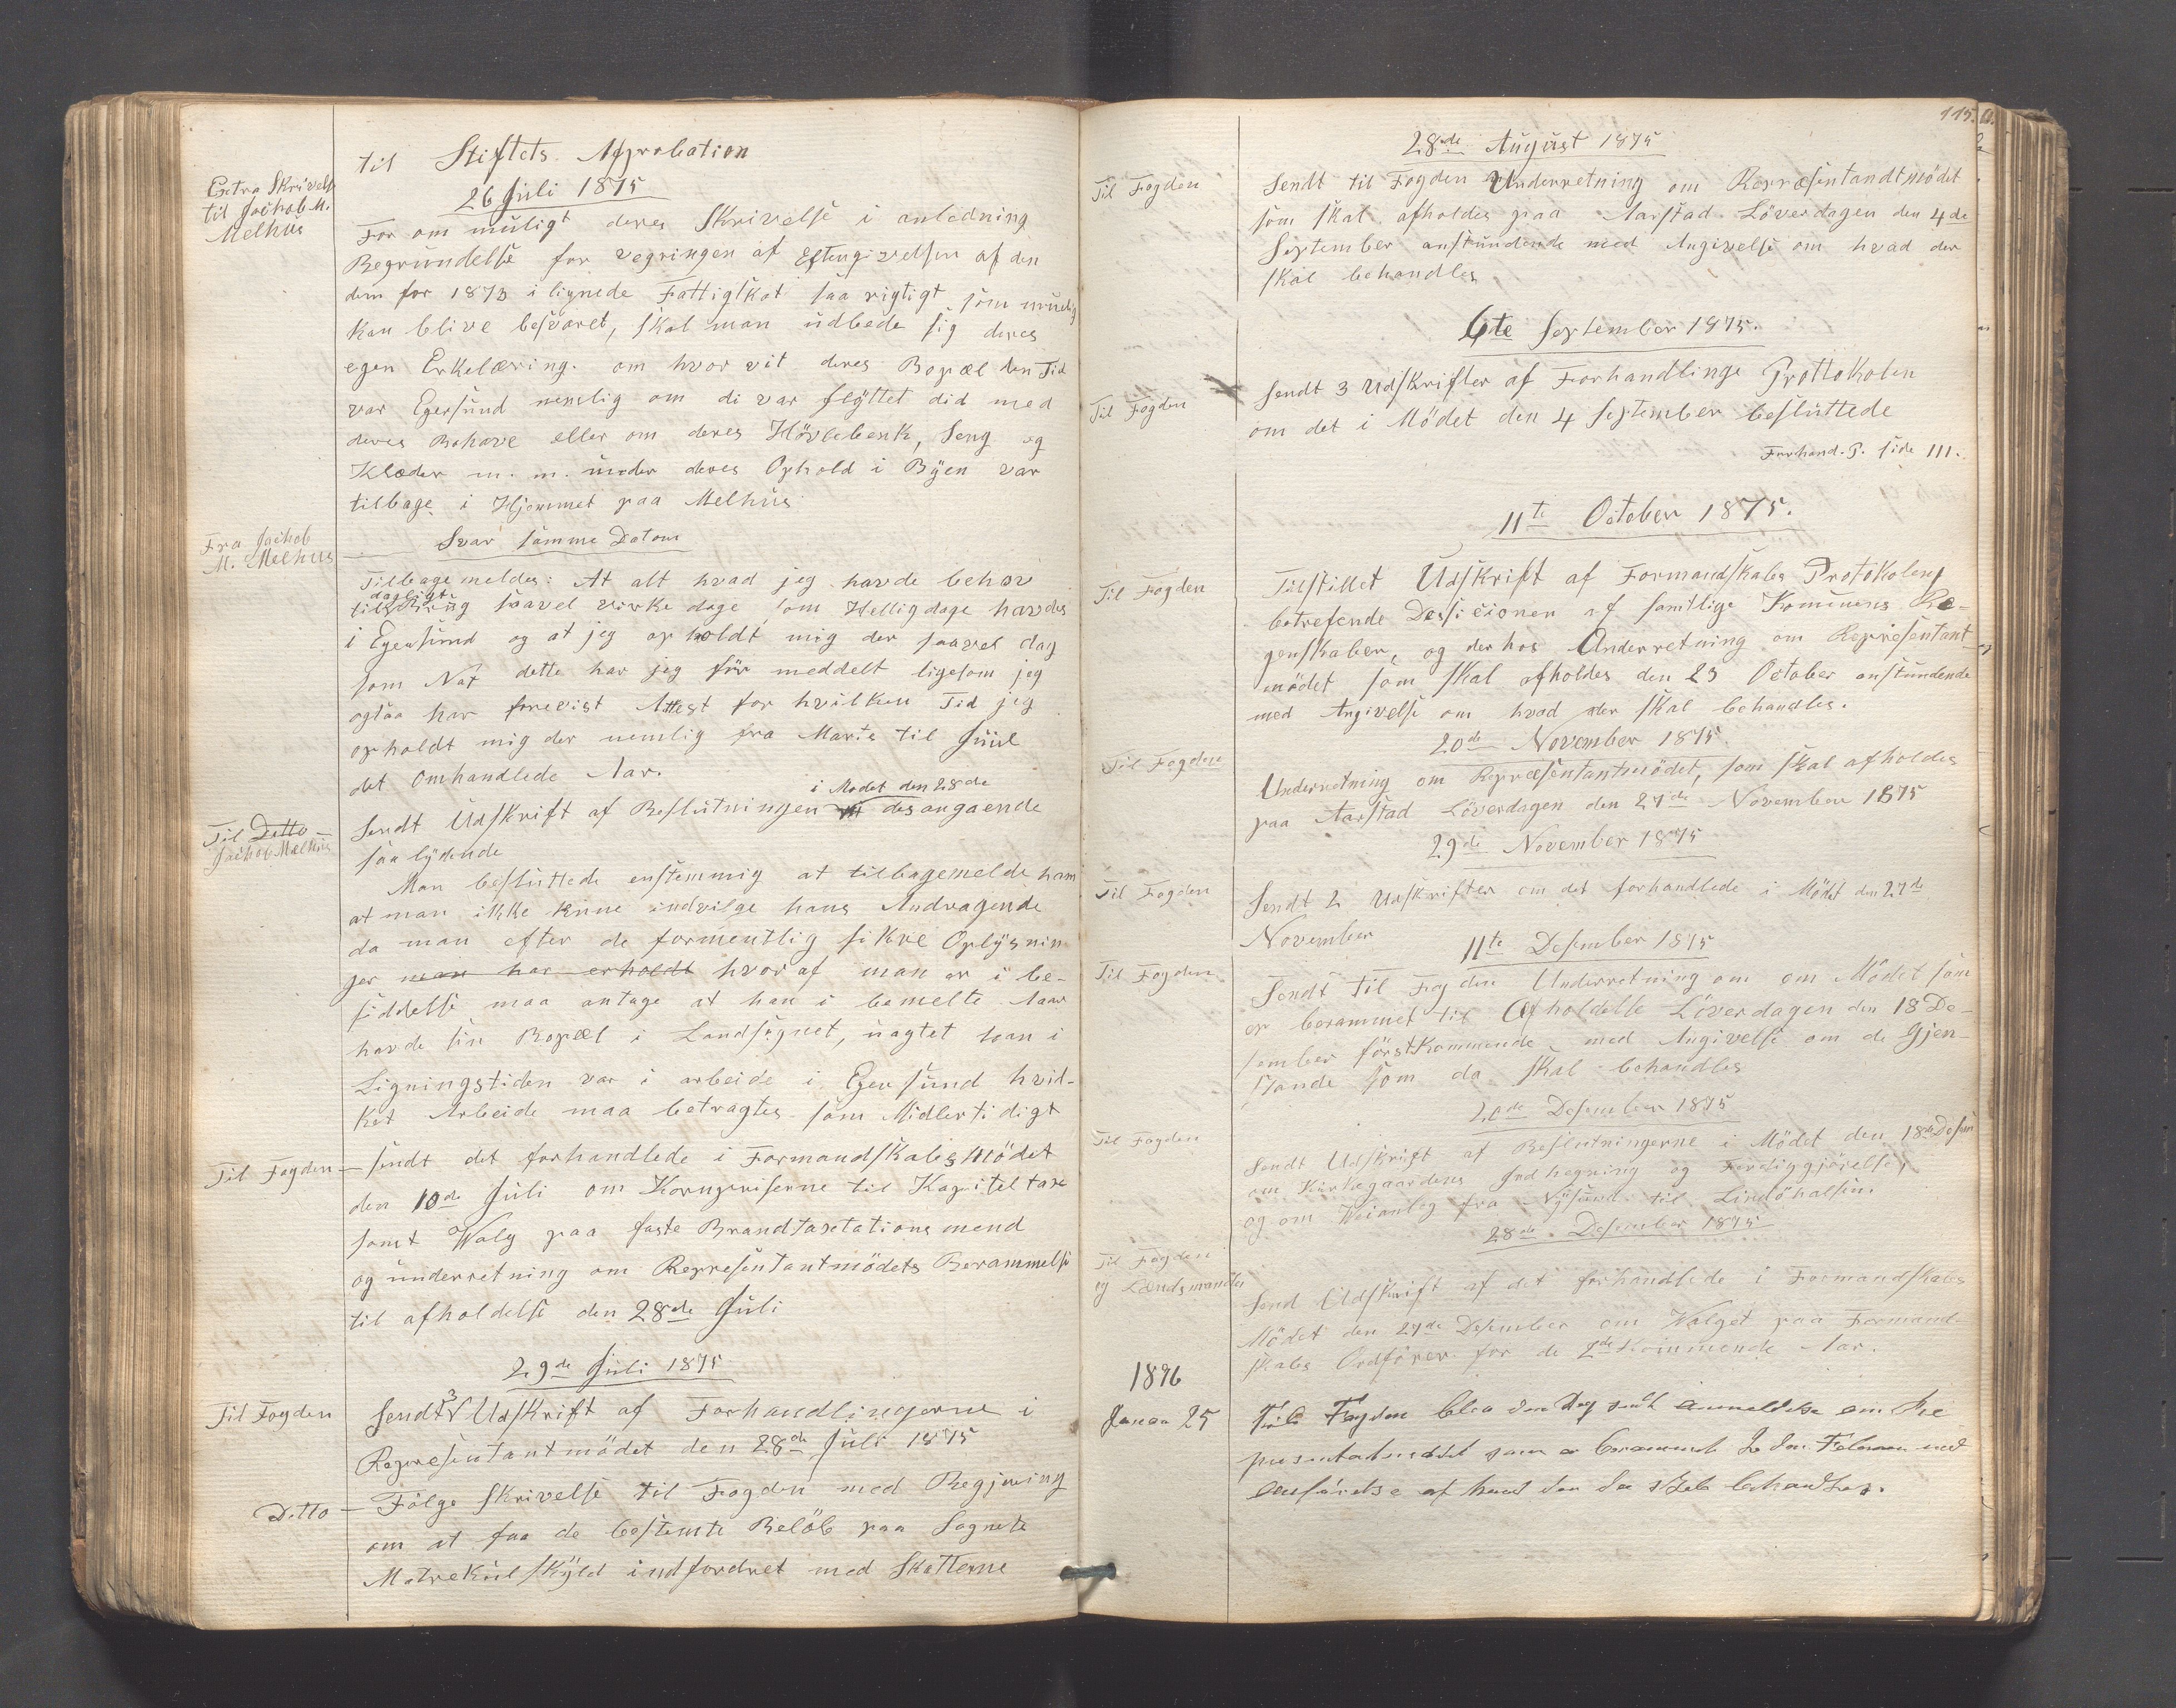 til Stiftets Approbation
26 Juli 1875
Extra Skrivelse
til Jachob M.
Melhus
For om muligt deres Skrivelse i anledning
Begrundelse for vegringen af Eftergivelsen af den
dem for 1873 ilignede Fattigskat saa rigtigt som muelig
kan blive besvaret, skal man udbede sig deres
egen Erkelæring om hvor vit deres Bopæl den Tid
var Egersund nemlig om di var flÿttet did med
deres Behave eller om deres Hövlebenk, Seng og
Klæder m. m. under deres Ophold i Bÿen var
tilbage i Hjemmet paa Melhus
Fra Jachob
M. Melhus
Svar samme Datom
Tilbagemeldes: At alt hvad jeg havde behov
til dagligt Brug saavel virkedage som Helligdage havdes
i Egersund og at jeg opholdt mig der saavel dag
som Nat dette har jeg før meddelt ligesom jeg
ogsaa har forevist Attest for hvilken Tid jeg
opholdt mig der nemlig fra Marts til Juul
det omhandlede Aar.
Til Ditto
Jachob Melhus
i Mødet den 28de
Sendt Udskrift af Beslutningen desangaende
saa lÿdende
Man besluttede enstemmig at tilbagemelde ham
at man ikke kune indvilge hans Andragende
da man efter de formentlig sikre Oplÿsnin
ger man har erholdt hvoraf man er i be-
siddelse maa antage at han i bemelte Aar
havde sin Bopæl i Landsognet, uagtet han i
Ligningstiden var i arbeide i Egersund hvil-
ket Arbeide maa betragtes som Midlertidigt
Til Fogden — sendt det forhandlede i Formandskabsmödet
den 10de Juli om Kornpriserne til Kapiteltaxt
samt Walg paa faste Brandtaxtationsmend
og underretning om Representantmödets Berammelse
til afholdelse den 28de Juli
29de Juli 1875
Til Fogden
Sendt 3 Udskrift af Forhandlingerne i
Representantmödet den 28de Juli 1875
Ditto — Fölge skrivelse til Fogden med Begjæring
om at faa de bestemte Belöb paa Sognets
Matrekulskÿld indfordret med Skatterne
115.
28de August 1875
Til Fogden
Sendt til Fogden Underretning om Repræsentandtmödet
som skal afholdes paa Aarstad Löverdagen den 4de
September anstundende med Angivelse om hvad der
skal behandles
6te September 1875.
Til Fogden
Sendt 3 Udskrifter af Forhandlings Prottokolen
om det i Mödet den 4 September besluttede
Forhand. P. side 111.
11te October 1875.
Til Fogden
Tilstillet Udskrift af Formandskabs Protokolen
betrefende Dessicionen af samtlige Komunens Re-
genskaber, og derhos Underretning om Representant
mödet som skal afholdes den 23 October anstundende
med Angivelse om hvad der skal behandles.
20de November 1875.
Til Fogden
Underretning om Representantmödet, som skal afholdes
paa Aarstad Löverdagen den 27de November 1875
29de November 1875
Til Fogden
Sendt 2 Udskrifter om det forhandlede i Mödet den 27de
November
11te Desember 1875
Til Fogden
Sendt til Fogden Underretning om om Mödet som
er berammet til Afholdelse Löverdagen den 18 De-
sember förstkommende, med Angivelse om de Gjen-
stande som da skal behandles
20de Desember 1875
Til Fogden
Sendt Udskrift af Beslutningerne i Mödet den 18de Desem
om Kirkegaardens Indhegning og Ferdiggjörelse,
og om Weianleg fra Nÿsund til Lindöhalsen.
28de Desember 1875
Til Fogden
og Lændsmanden
Send Udskrift af det forhandlede i Formandskabs
Mödet den 27de Desember om Walget paa Formand-
skabs Ordförer for de 2de kommende Aar.
1876
Januar 25
Til Fogden blev den Dag sendt Anmeldelse om Re
presentantmødet som er berammet den Februar med
Anførelse af hvad der da skal behandles.